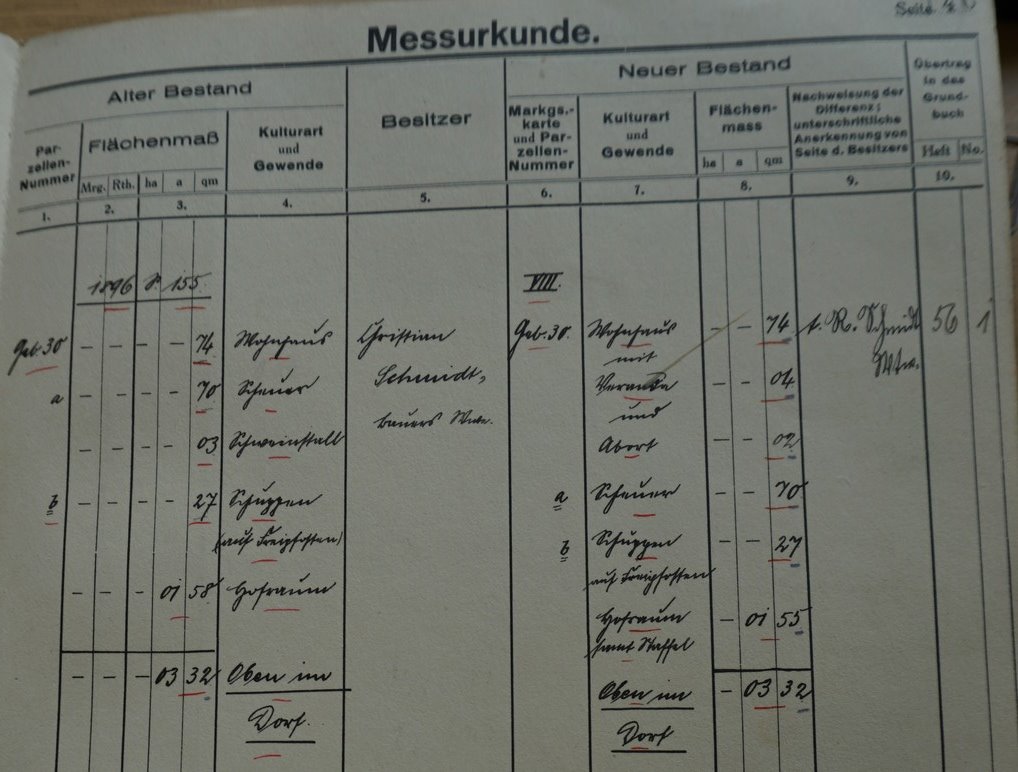 Seite 40
Messurkunde.
Alter Bestand
Besitzer
Neuer Bestand
Übertrag
in das
Grund-
buch
Par-
zellen-
Nummer
Flächenmaß
Kulturart
und
Gewende
Markgs.-
karte
und Par-
zellen-
Nummer
Kulturart
und
Gewende
Flächen-
mass
Nachweisung der
Differenz;
unterschriftliche
Anerkennung von
Seite d. Besitzers
Mrg. Rth. ha a qm
ha a qm
Heft No.
1. 2. 3. 4. 5. 6. 7. 8. 9. 10.
1896 S. 155
VIII.
Geb. 30 – – – – 74 Wohnhaus Christian Geb. 30. Wohnhaus – – 74 t. R. Schmidt 56 1
mit Wtw.
a – – – – 70 Scheuer Schmidt, Veranda – – 04
bauers Wwe. und
– – – – 03 Schweinstall Abort – – 02
b – – – – 27 Schuppen a Scheuer – – 70
(auf Freipfosten) b Schuppen – – 27
auf Freipfosten
– – – 01 58 Hofraum Hofraum – 01 55
samt Staffel
– – – 03 32 Oben im Oben im – 03 32
Dorf. Dorf